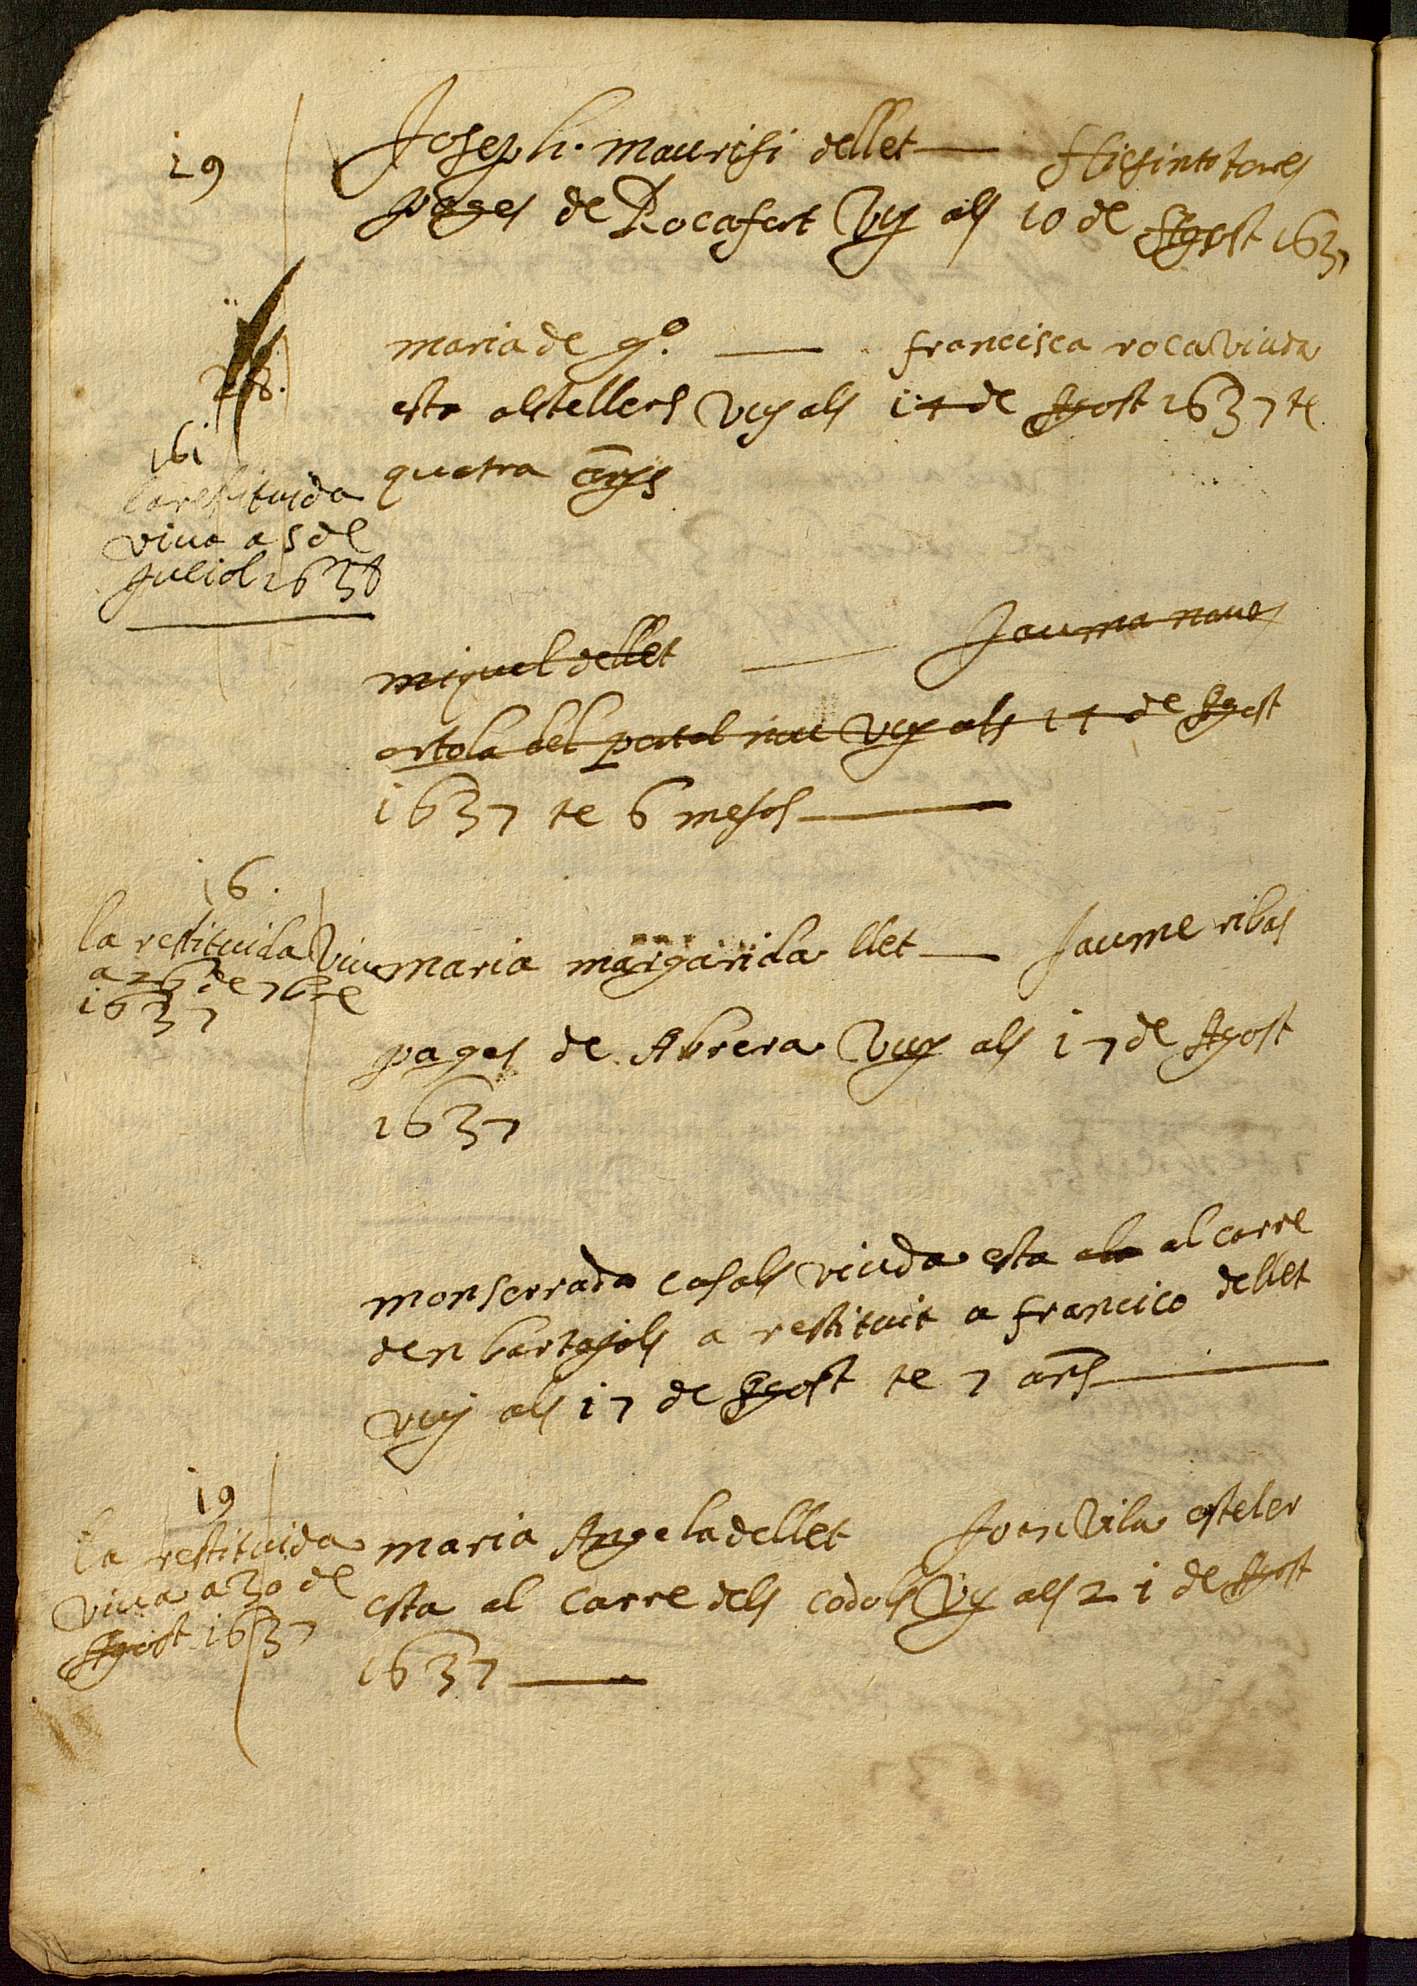 19
Joseph. maurisi dellet — Hiesinto tores
pages de Rocafort Vuy als 10 de Agost 1637
maria de gº. — francisca roca viuda
esta alstellers Vuy als 14 de Agost 1637 te
quatra anys
161
la restituida
viua a 5 de
Juliol 1638
miquel dellet — Jauma naues
ortola del portal nou Vuy als 14 de Agost
1637 te 6 mesos —
16.
la restituida Viua
a 26 de 7bre
1637
maria margarida llet — Jaume ribas
pages de Abrera Vuy als 17 de Agost
1637
monserrada casals viuda esta ala al carre
den bartojols a restituit a francico dellet
vuy als 17 de Agost te 7 ans —
19
la restituida
viua a 30 de
Agost 1637
maria Angela dellet Joan Vila esteler
esta al carre dels codols Vuy als 21 de Agost
1637 —